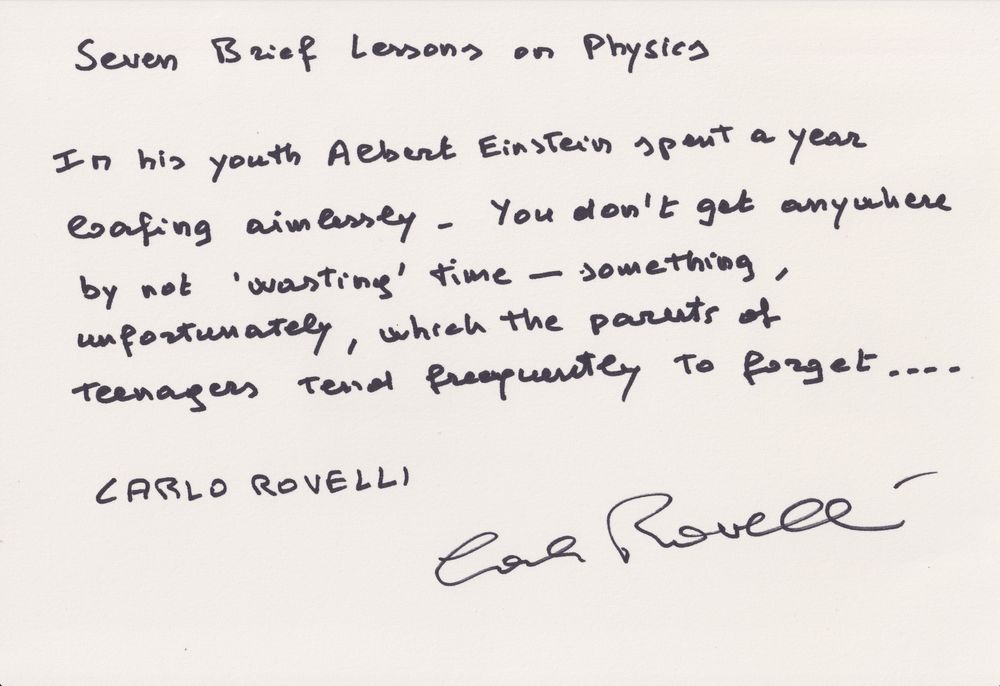 Seven Brief Lessons on Physics
In his youth Albert Einstein spent a year
loafing aimlessly - You don't get anywhere
by not 'wasting' time — something,
unfortunately, which the parents of
teenagers tend frequently to forget....
CARLO ROVELLI
Carlo Rovelli